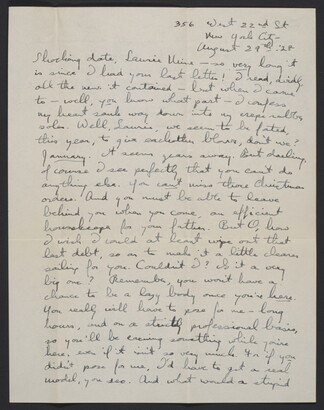 356 West 22nd St
New York City -
August 29th, '28
Shocking date, Laurie Mine - so very long it
is since I had your last letter! I read, avidly,
all the news it contained - but when I came
to - well, you know what part - I confess
my heart sank way down - to my crepe rubber
soles. Well, Laurie, we seem to be fated,
this year, to give each other blows, don't we?
January. It seems years away. But darling,
of course I see perfectly that you can't do
anything else. You can't miss those Christmas
orders. And you must be able to leave
behind you, when you come, an efficient
housekeeper for your father. But O, how
I wish I could at least wipe out that
last debt, so as to make it a little clearer
sailing for you. Couldn't I? Is it a very
big one? Remember, you won't have a
chance to be a lazy body once you're here.
You really will have to pose for me - long
hours, and on a strictly professional basis,
so you'll be earning something while you're
here, even if it isn't so very much. For if you
didn't pose for me, I'd have to get a real
model, you see. And what would a stupid